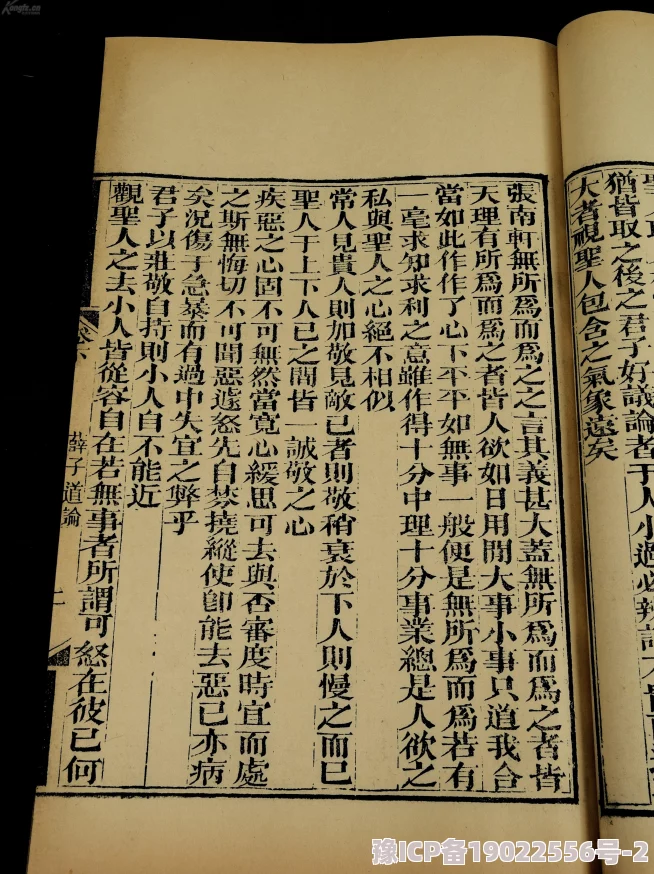 猶皆取之後之君子好議論者于人小過必辨
大者視聖人包含之氣象遠矣
張南軒無所爲而爲之之言其義甚大蓋無所爲而爲之者皆
天理有所爲而爲之者皆人欲如日用閒大事小事只道我合
當如此作作了心下平平如無事一般便是無所爲而爲若有
一毫求知求利之意雖作得十分中理十分事業總是人欲之
私與聖人之心絕不相似
常人見貴人則加敬見敵已者則敬稍衰於下人則慢之而巳
聖人于上下人已之閒皆一誠敬之心
疾惡之心固不可無然當寬心緩思可去與否審度時宜而處
之斯無悔切不可聞惡遽怒先自焚撓縱使卽能去惡已亦病
矣況傷于急暴而有過中失宜之弊乎
君子以莊敬自持則小人自不能近
觀聖人之去小人皆從容自在若無事者所謂可怒在彼已何
薛子道論
豫ICP备19022556号-2